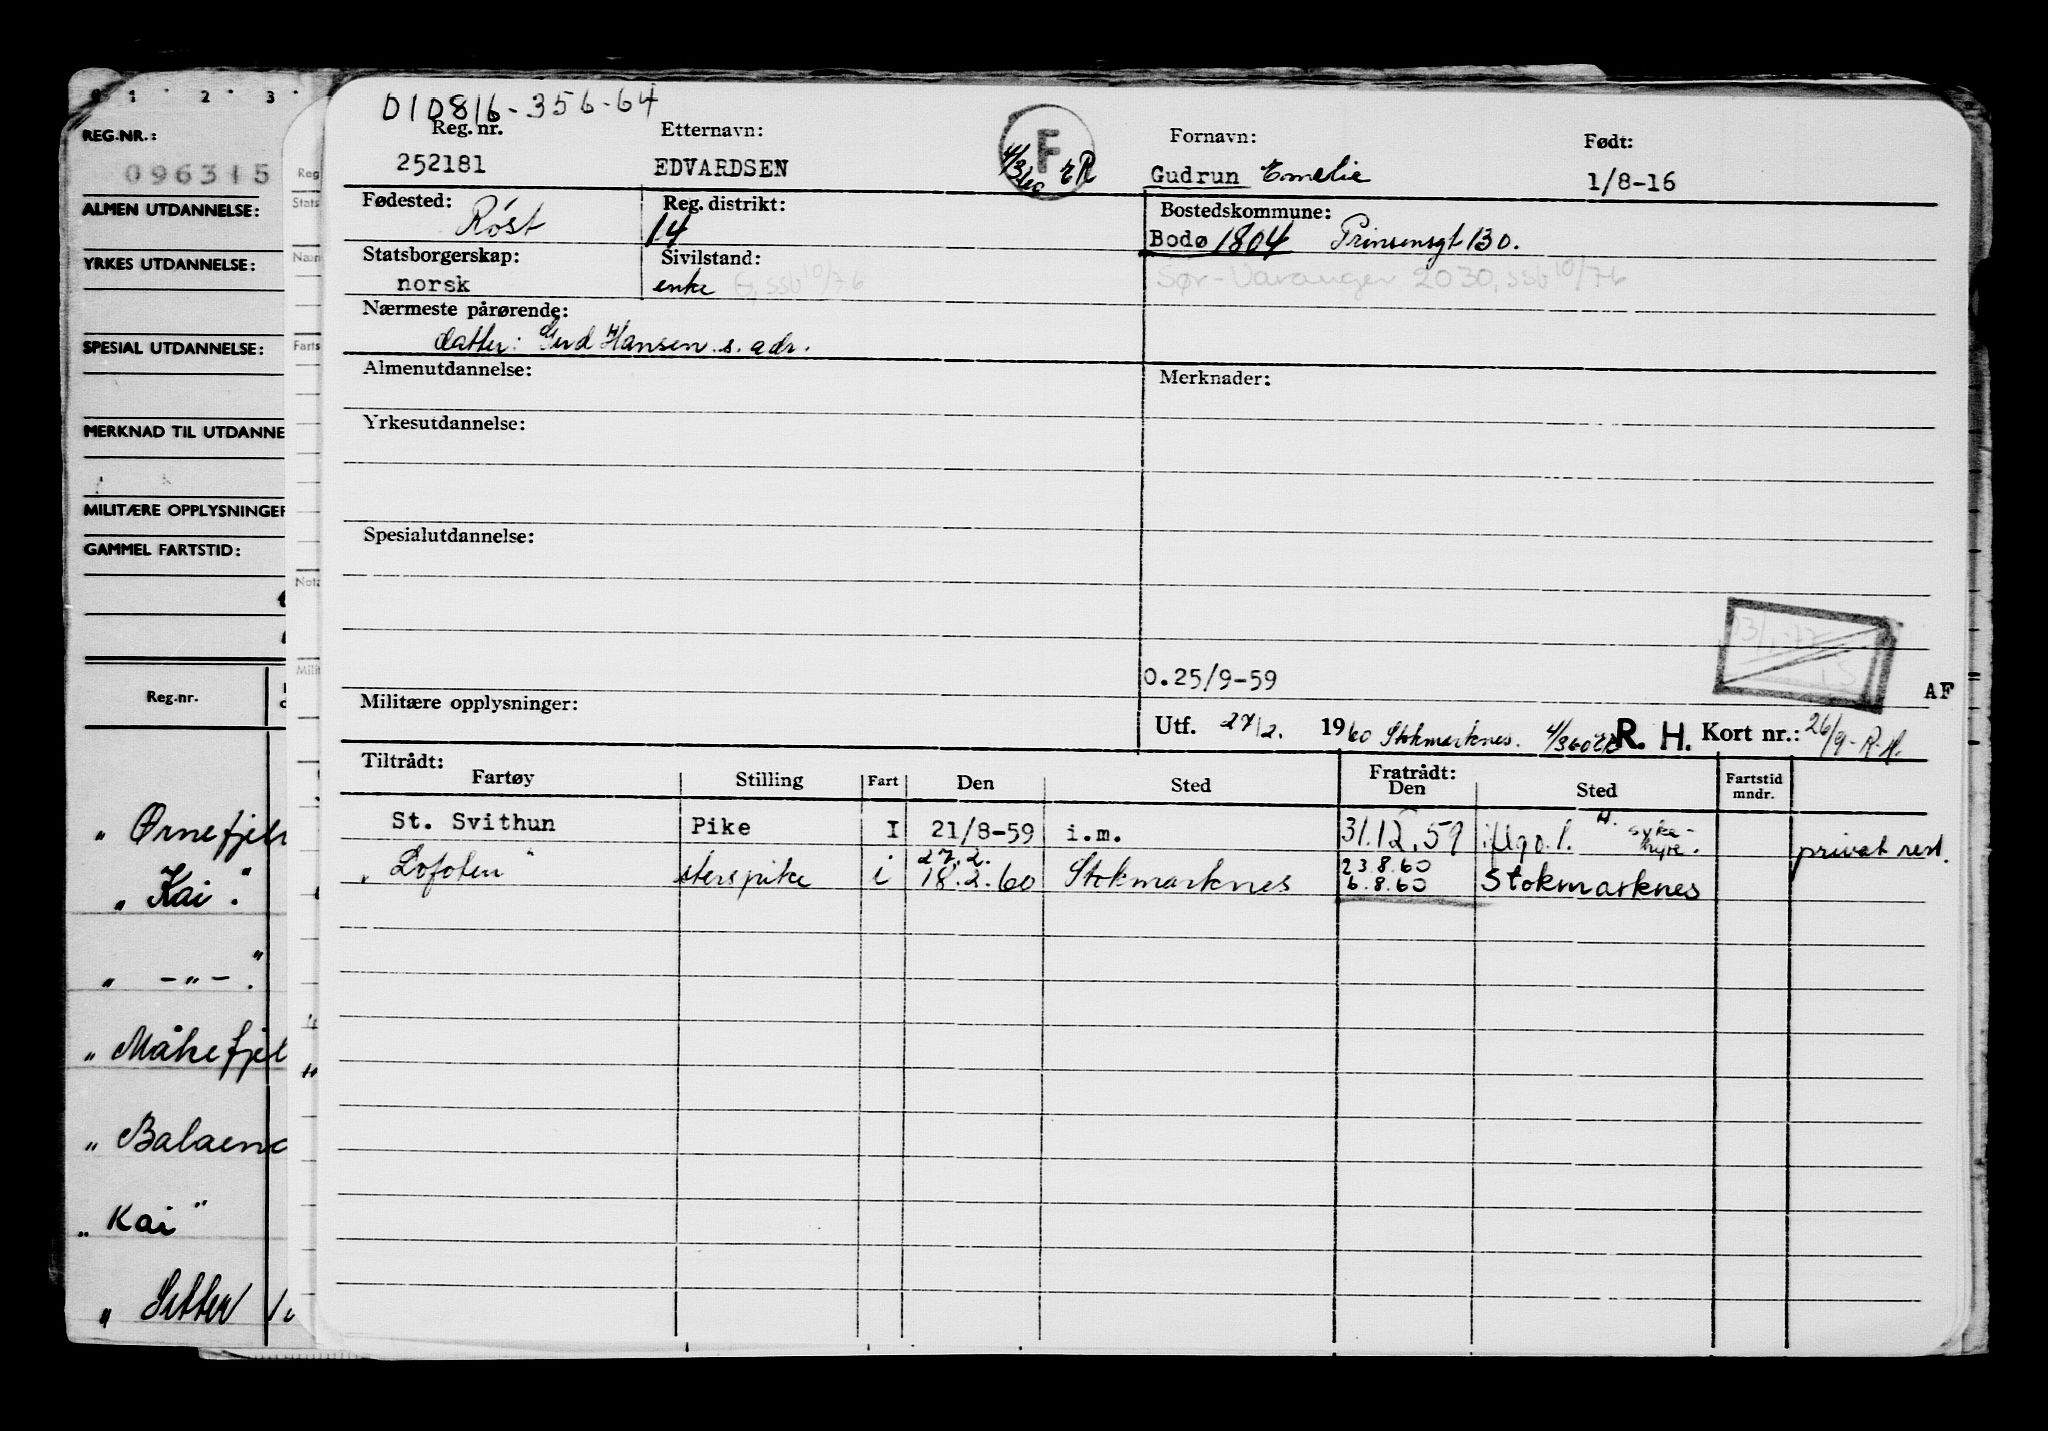 010816-356-64
Reg. nr. Etternavn: F Fornavn: Født:
252181 EDVARDSEN 4/3 60 Gudrun Emelie 1/8-16
Fødested: Røst Reg. distrikt: 14 Bostedskommune:
Bodø 1804 Prinsensgt 130.
Statsborgerskap: Sivilstand:
norsk enke ssb 10/76 Sør-Varanger 2030, ssb 10/76
Nærmeste pårørende:
datter: Gerd Hansen. s. adr.
Almenutdannelse: Merknader:
Yrkesutdannelse:
Spesialutdannelse:
0.25/9-59
AF
Militære opplysninger:
Utf. 27/2. 1960 Stokmarknes. 4/3 60 R. H. Kort nr.: 26/9-R.H.
Tiltrådt: Fratrådt:
Fartøy Stilling Fart Den Sted Den Sted Fartstid mndr.
St. Svithun Pike I 21/8-59 i.m. 31.12.59 privat rest.
„Lofoten" i 27.2. 18.2.60 Stokmarknes 23.8.60 6.8.60 Stokmarknes
1 2 3
REG.NR.:
096315
ALMEN UTDANNELSE:
YRKES UTDANNELSE:
SPESIAL UTDANNELSE:
MERKNAD TIL UTDANNE
MILITÆRE OPPLYSNINGER
GAMMEL FARTSTID:
Reg.nr.
„ Ørnefjel
„ Kai".
„ -„- ".
„ Måkefjel
„ Balaena
„ Kai"
„ Sitter
Reg
Stats
Næm
Farts
Nota
Milit